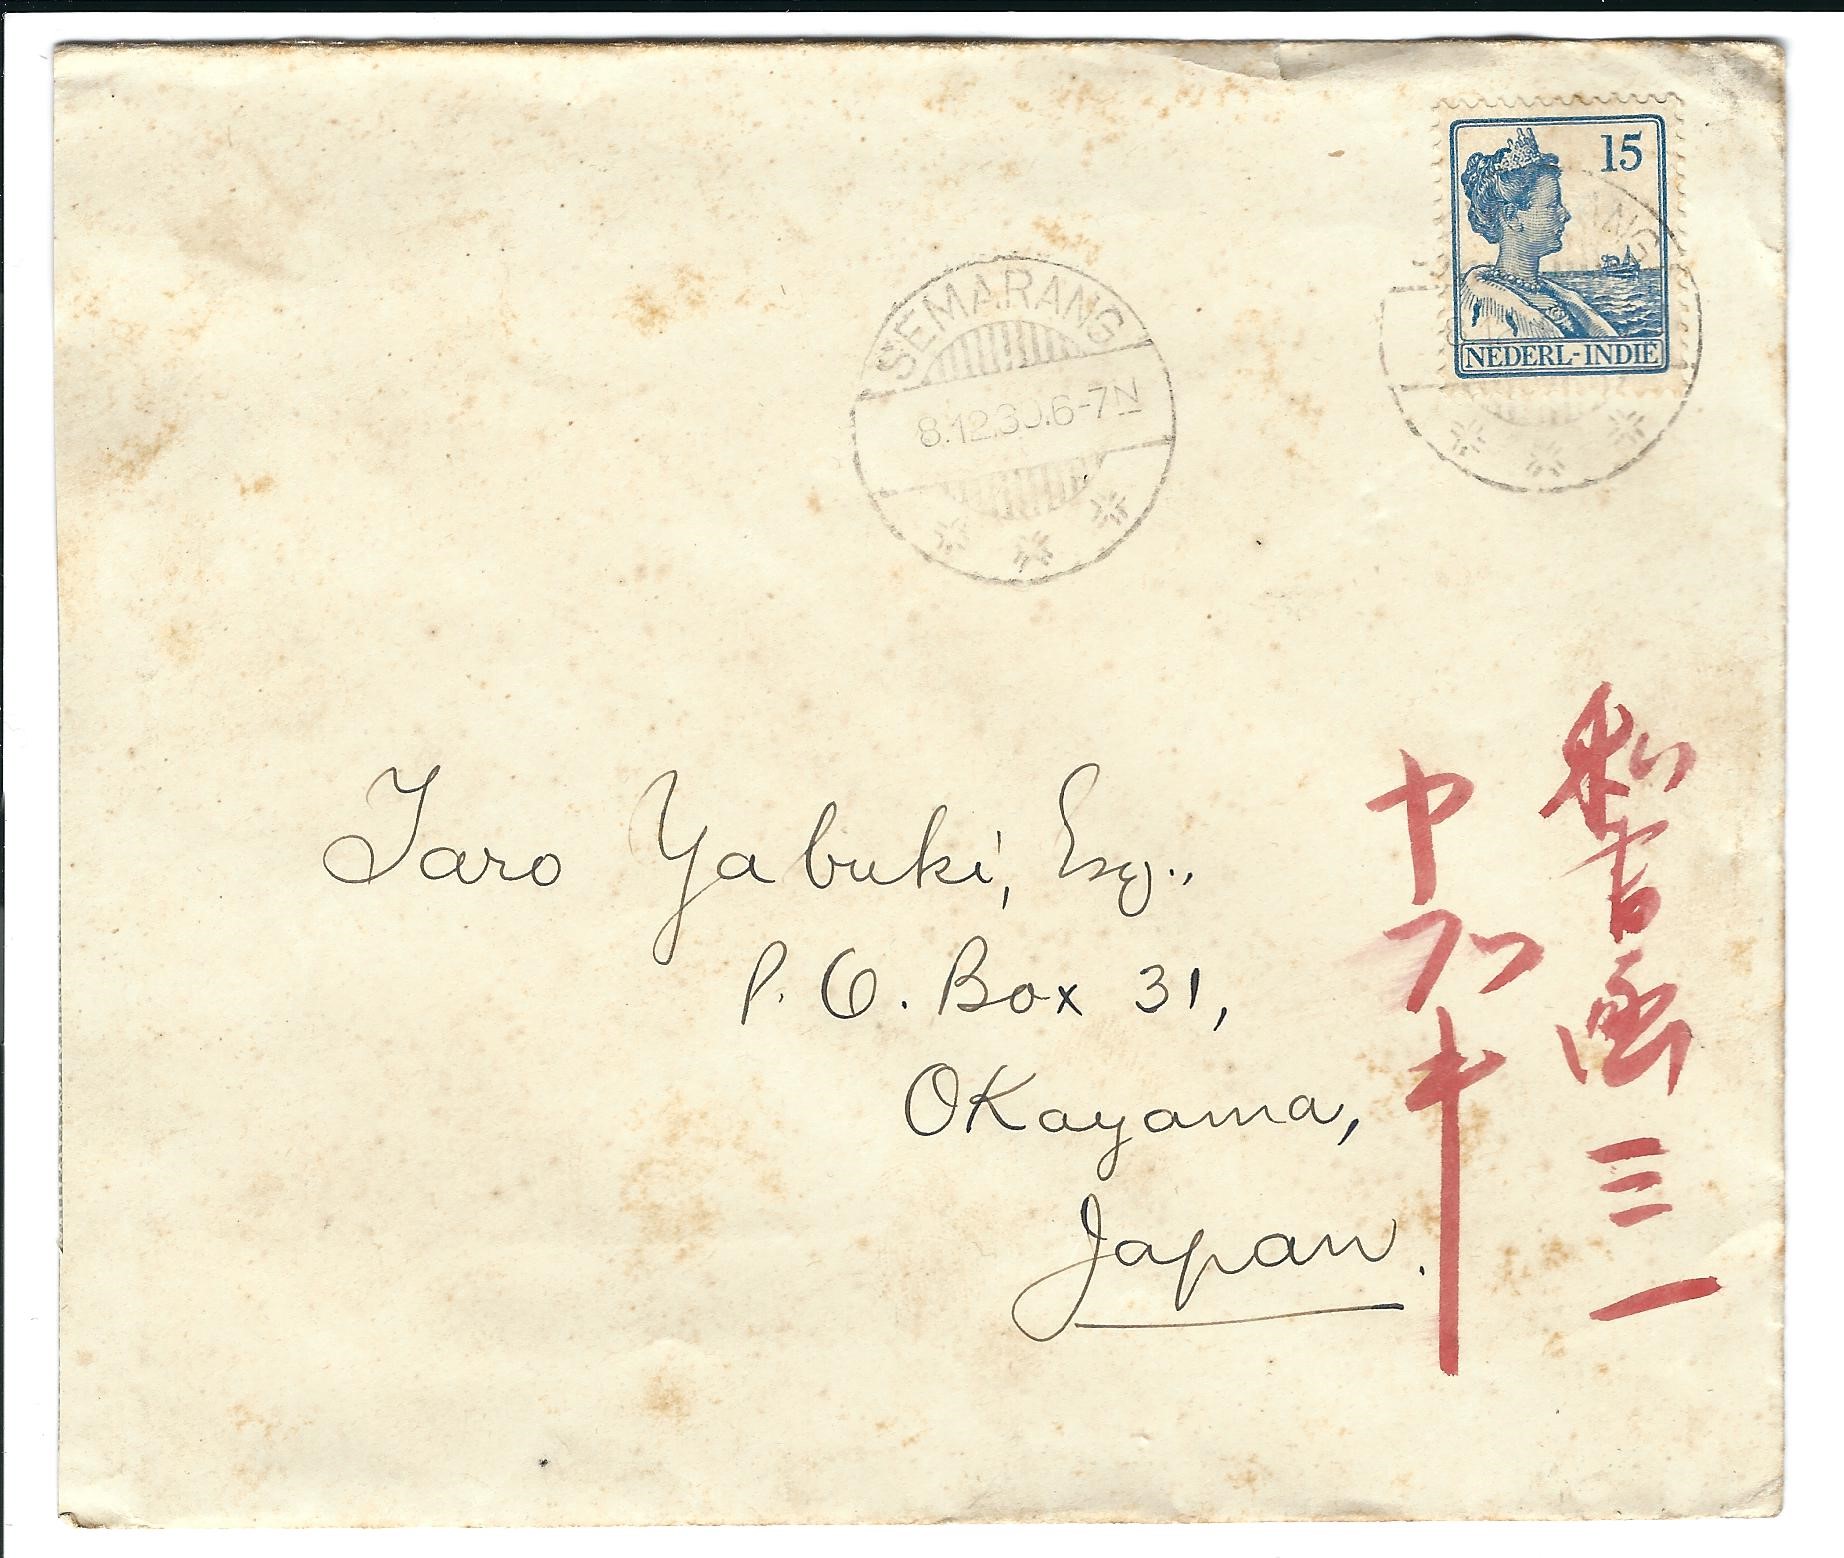 15
NEDERL-INDIË
SEMARANG
8.12.30.6-7N
Taro Yabuki, Esq.,
P. O. Box 31,
Okayama,
Japan.
私書函三一
ヤブキ